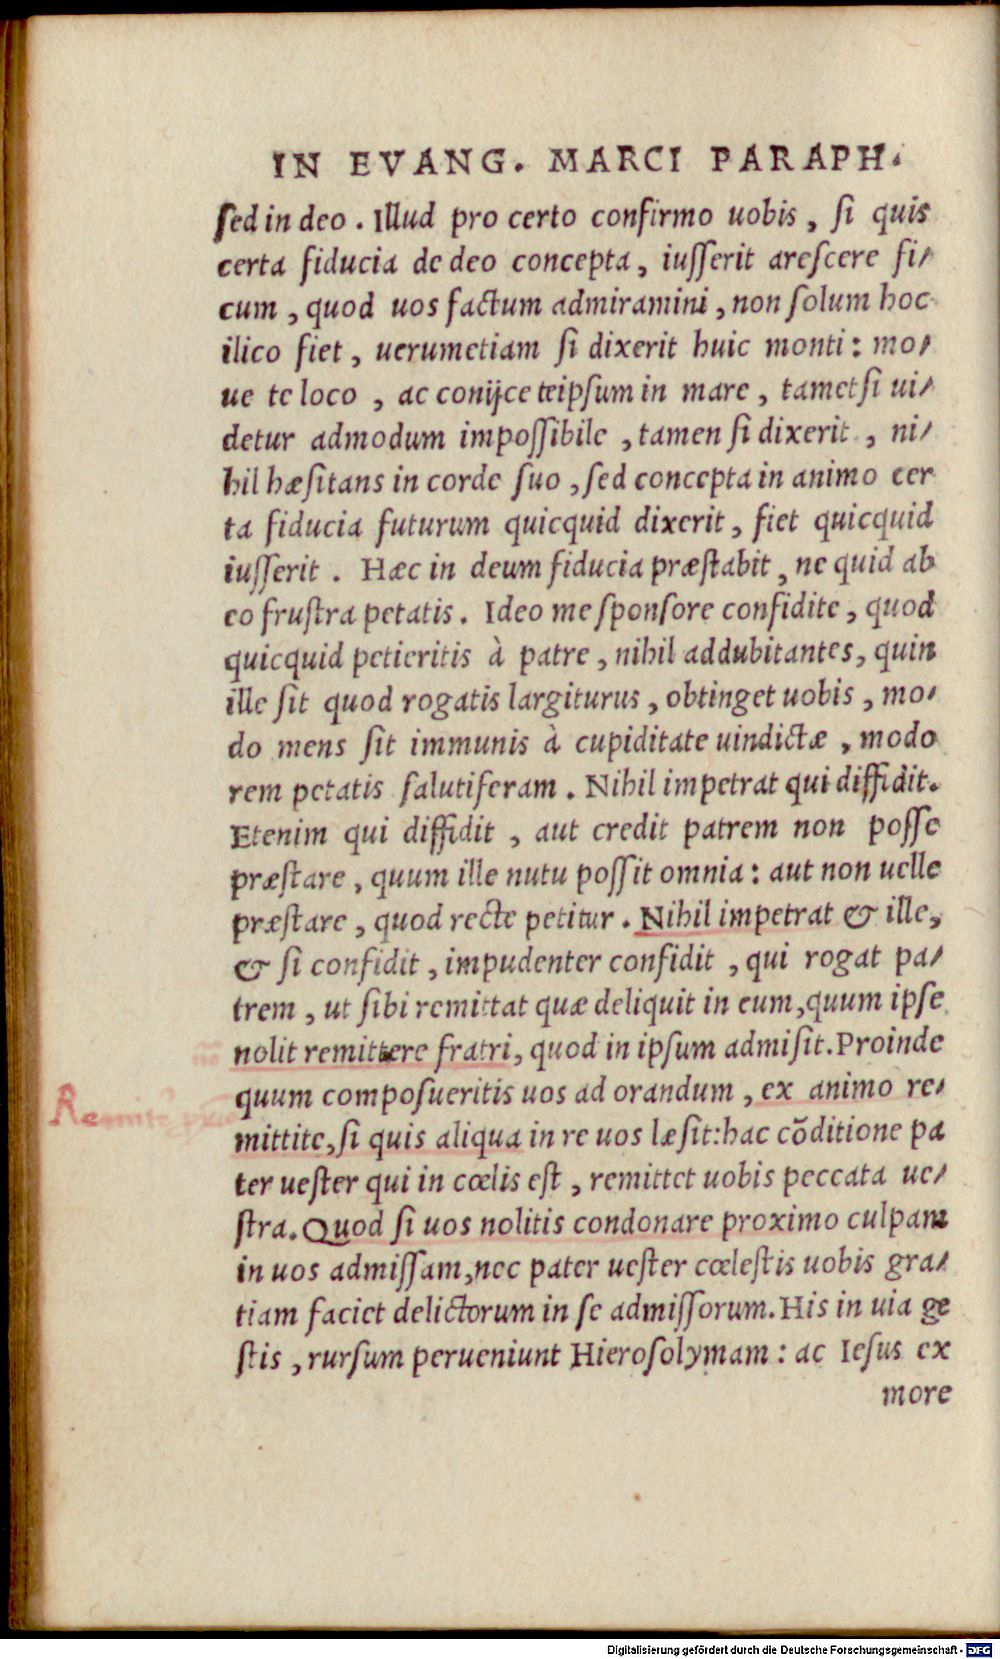 IN EVANG. MARCI PARAPH.
sed in deo. Illud pro certo confirmo uobis, si quis
certa fiducia de deo concepta, iusserit arescere fi-
cum, quod uos factum admiramini, non solum hoc
ilico fiet, uerumetiam si dixerit huic monti: mo-
ue te loco, ac conijce teipsum in mare, tametsi ui-
detur admodum impossibile, tamen si dixerit, ni-
hil hæsitans in corde suo, sed concepta in animo cer
ta fiducia futurum quicquid dixerit, fiet quicquid
iusserit. Hæc in deum fiducia præstabit, ne quid ab
eo frustra petatis. Ideo me sponsore confidite, quod
quicquid petieritis à patre, nihil addubitantes, quin
ille sit quod rogatis largiturus, obtinget uobis, mo-
do mens sit immunis à cupiditate uindictæ, modo
rem petatis salutiferam. Nihil impetrat qui diffidit.
Etenim qui diffidit, aut credit patrem non posse
præstare, quum ille nutu possit omnia: aut non uelle
præstare, quod recte petitur. Nihil impetrat & ille,
& si confidit, impudenter confidit, qui rogat pa-
trem, ut sibi remittat quæ deliquit in eum, quum ipse
nolit remittere fratri, quod in ipsum admisit. Proinde
quum composueritis uos ad orandum, ex animo re-
Remitte
mittite, si quis aliqua in re uos læsit: hac cōditione pa
ter uester qui in cœlis est, remittet uobis peccata ue-
stra. Quod si uos nolitis condonare proximo culpam
in uos admissam, nec pater uester cœlestis uobis gra-
tiam faciet delictorum in se admissorum. His in uia ge
stis, rursum perueniunt Hierosolymam: ac Iesus ex
more
Digitalisierung gefördert durch die Deutsche Forschungsgemeinschaft - DFG